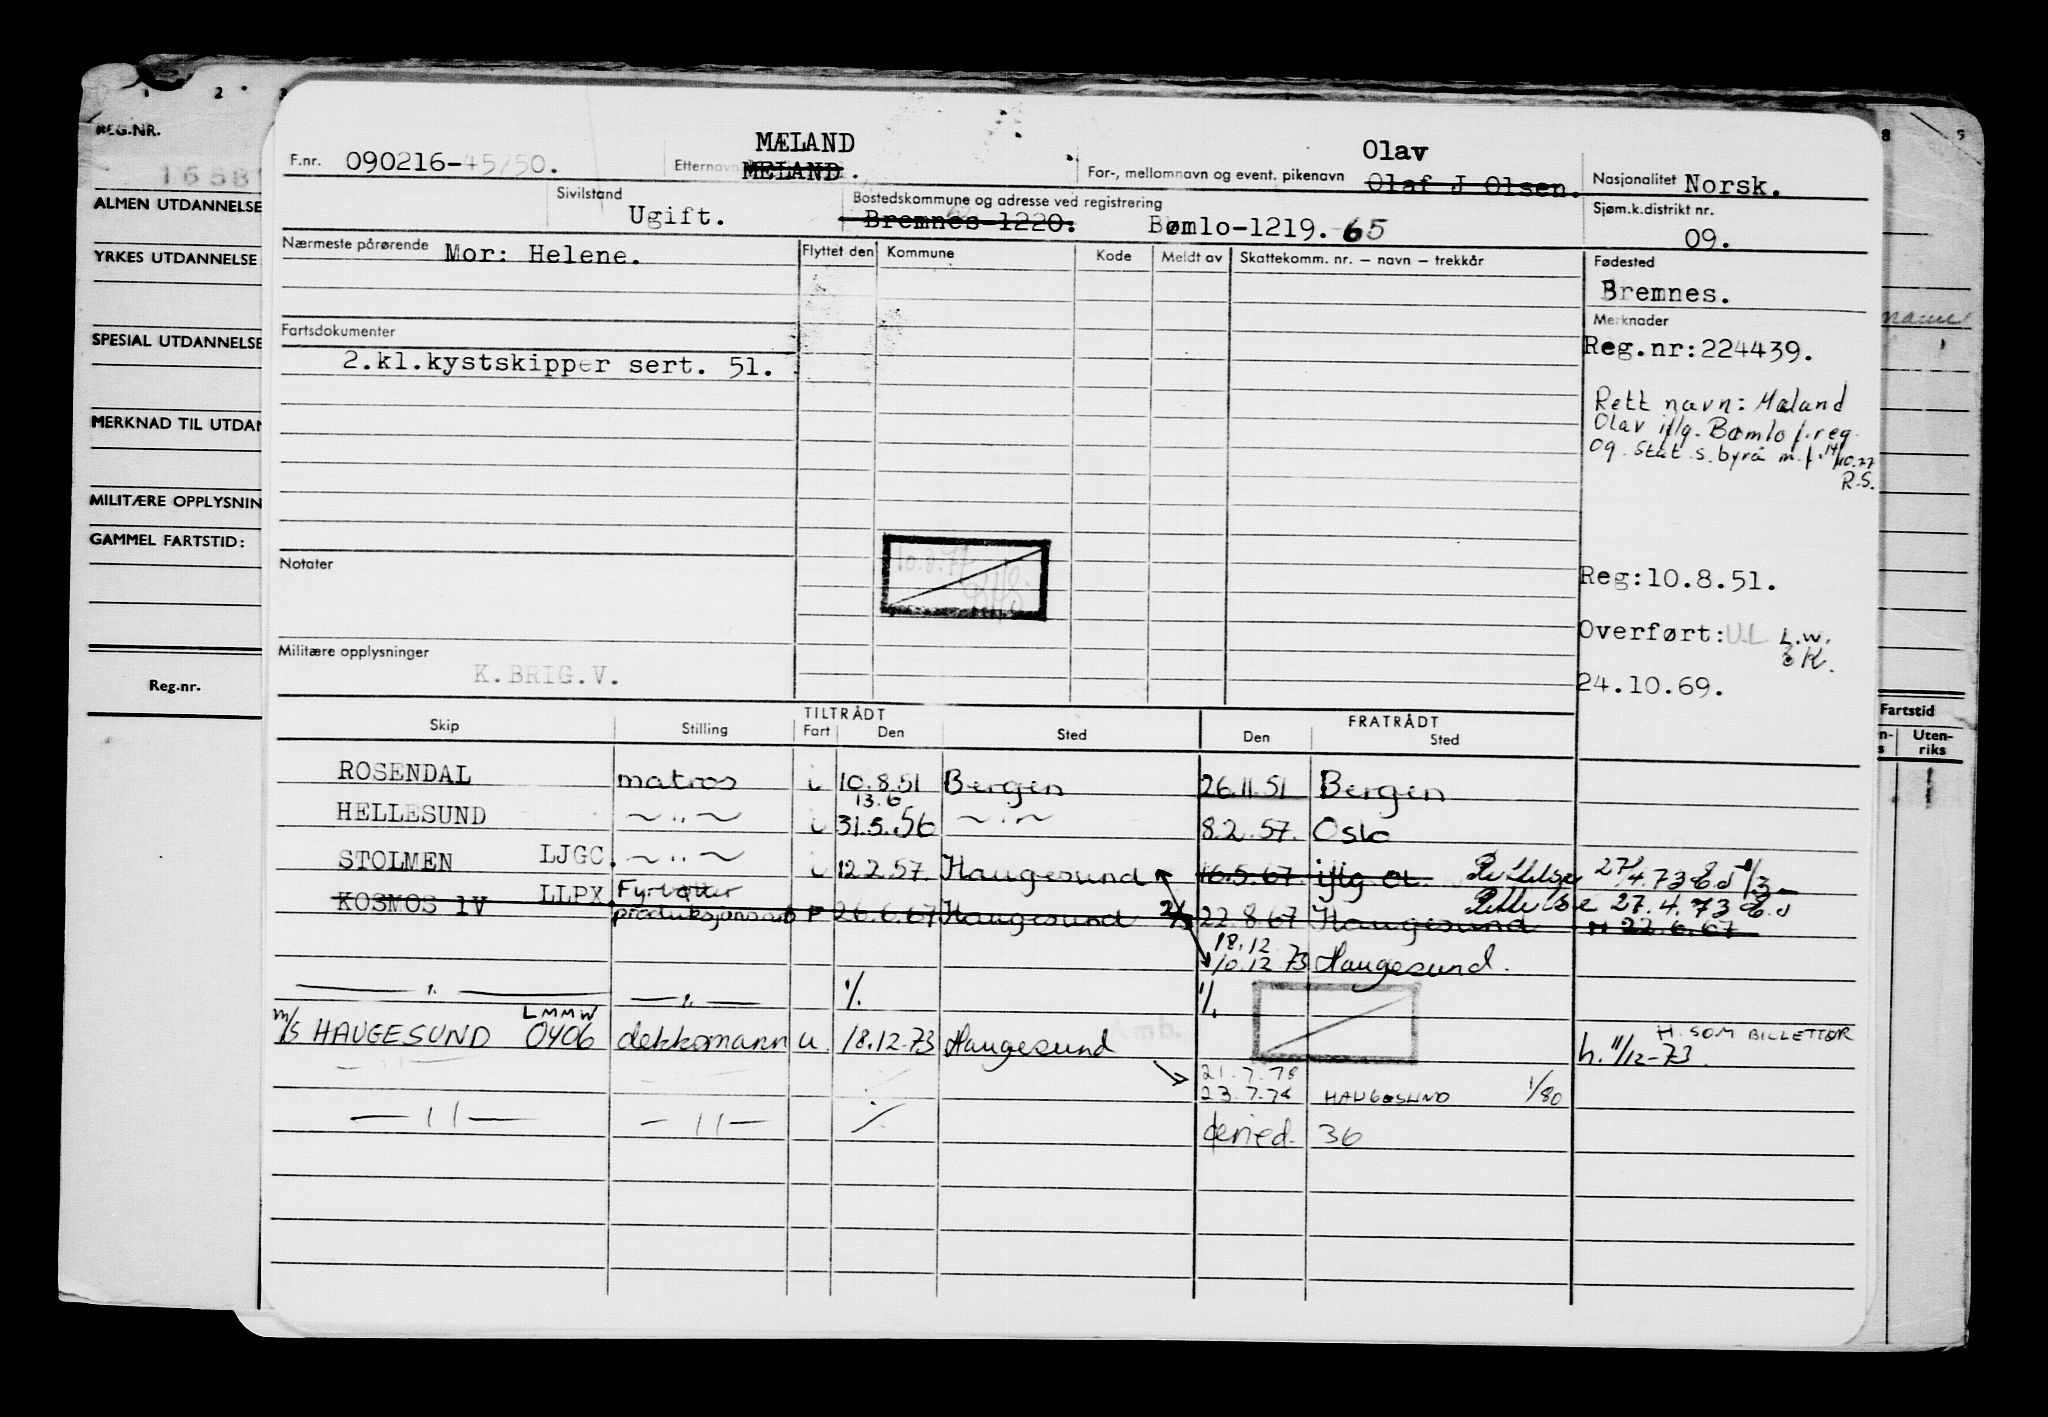 2 3 8 9
REG.NR.
ALMEN UTDANNELSE
YRKES UTDANNELSE
SPESIAL UTDANNELSE
MERKNAD TIL UTDAN
MILITÆRE OPPLYSNIN
GAMMEL FARTSTID:
Reg.nr.
Fartstid
Uten-
riks
MÆLAND Olav
F.nr. 090216-45750. Etternavn MELAND. For-, mellomnavn og event. pikenavn Olaf J Olsen. Nasjonalitet Norsk.
Sivilstand Ugift. Bostedskommune og adresse ved registrering Bremnes-1220. Bømlo-1219. 65 Sjøm.k.distrikt nr. 09.
Nærmeste pårørende Mor: Helene. Flyttet den Kommune Kode Meldt av Skattekomm. nr. – navn – trekkår Fødested
Bremnes.
Merknader
Fartsdokumenter
2.kl.kystskipper sert. 51. Reg.nr:224439.
Rett navn: Mæland
Olav iflg. Bømlo f.reg.
og stat.s.byrå m.f. 14/10.77
R.S.
Notater
Reg:10.8.51.
Overført: L.W.
K.
Militære opplysninger K.BRIG.V.
24.10.69.
TILTRÅDT FRATRÅDT
Skip Stilling Fart Den Sted Den Sted
ROSENDAL matros i 10.8.51 Bergen 26.11.51 Bergen
13.6
HELLESUND ~ " ~ i 31.5.56 ~ " ~ 8.2.57. Oslo
STOLMEN LJGC. ~ " ~ i 12.2.57. Haugesund 16.5.67. iflg OL. Rettelse 27/4.73
KOSMOS IV LLPX. Fyrbøter F 26.6.67 Haugesund 22.8.67 Haugesund Rettelse 27.4.73
M 22.6.67
18.12
10.12 73 Haugesund.
— " — — " — ·/. ·/.
m/s HAUGESUND LMMW 0406 dekksmann u. 18.12-73 Haugesund H. SOM BILLETTØR
h. 11/12-73.
21.7.78
23.7.78 HAUGESUND 1/80
— " — — " — ·/.